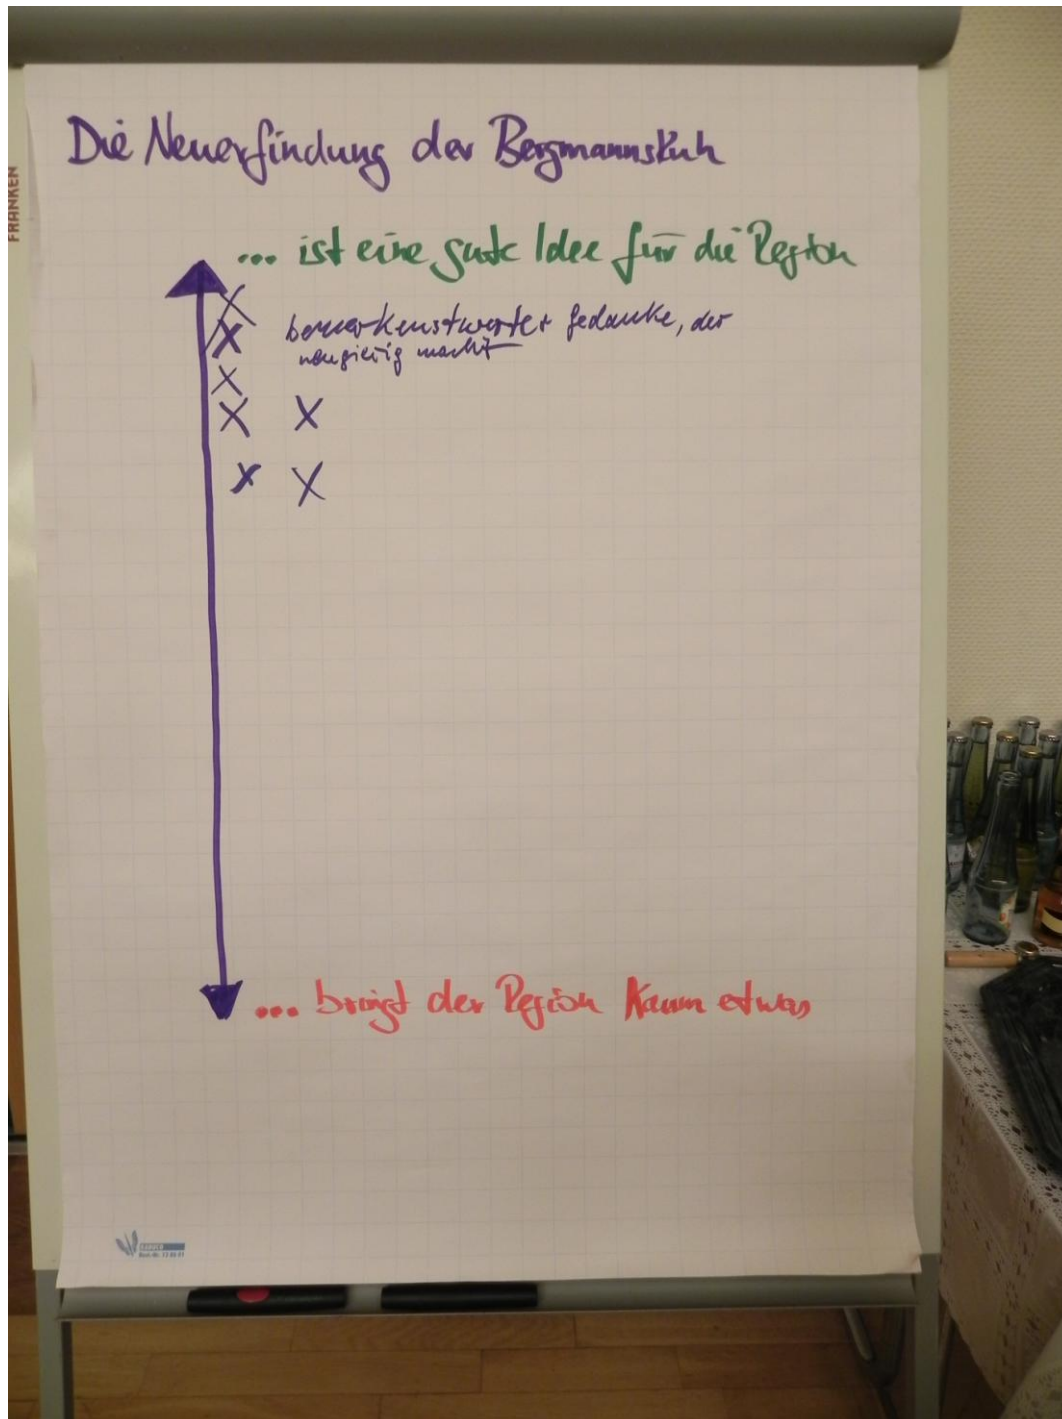 Die Neuerfindung der Bergmannskuh
... ist eine gute Idee für die Region
X
X bemerkenstwerter Gedanke, der
neugierig macht
X
X X
X X
... bringt der Region kaum etwas
FRANKEN